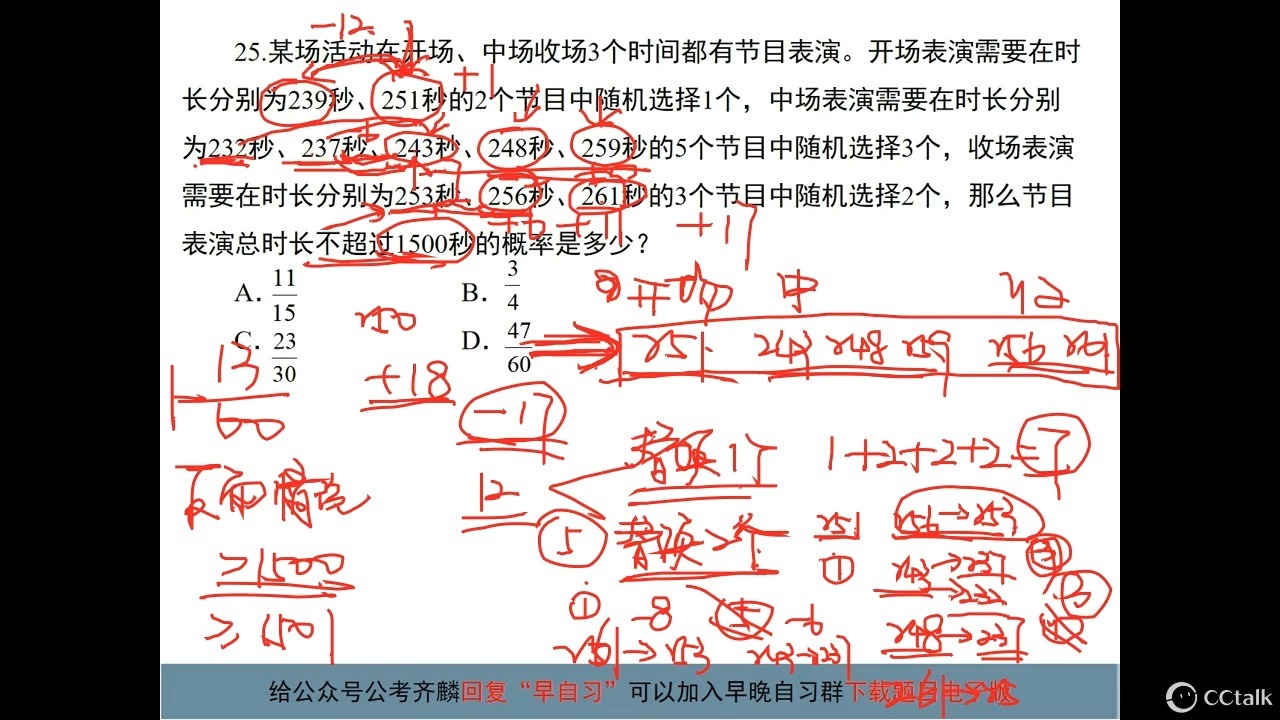 -12
25.某场活动在开场、中场收场3个时间都有节目表演。开场表演需要在时
+1
长分别为239秒、251秒的2个节目中随机选择1个，中场表演需要在时长分别
为232秒、237秒、243秒、248秒、259秒的5个节目中随机选择3个，收场表演
需要在时长分别为253秒、256秒、261秒的3个节目中随机选择2个，那么节目
+6 +11 +17
表演总时长不超过1500秒的概率是多少？
A. 11/15
B. 3/4
C. 23/30
D. 47/60
中
251 243 248 259 256 261
250
+18
-17
1-13/60
替换1个 1+2+2+2=7
反面情况
12
5
替换2个
251
256→253
①
243→237
→232
3
>1500
≥1501
① -8
-6
248→237
251→253
243→237
给公众号公考齐麟回复“早自习”可以加入早晚自习群下载题目电子版
CCtalk